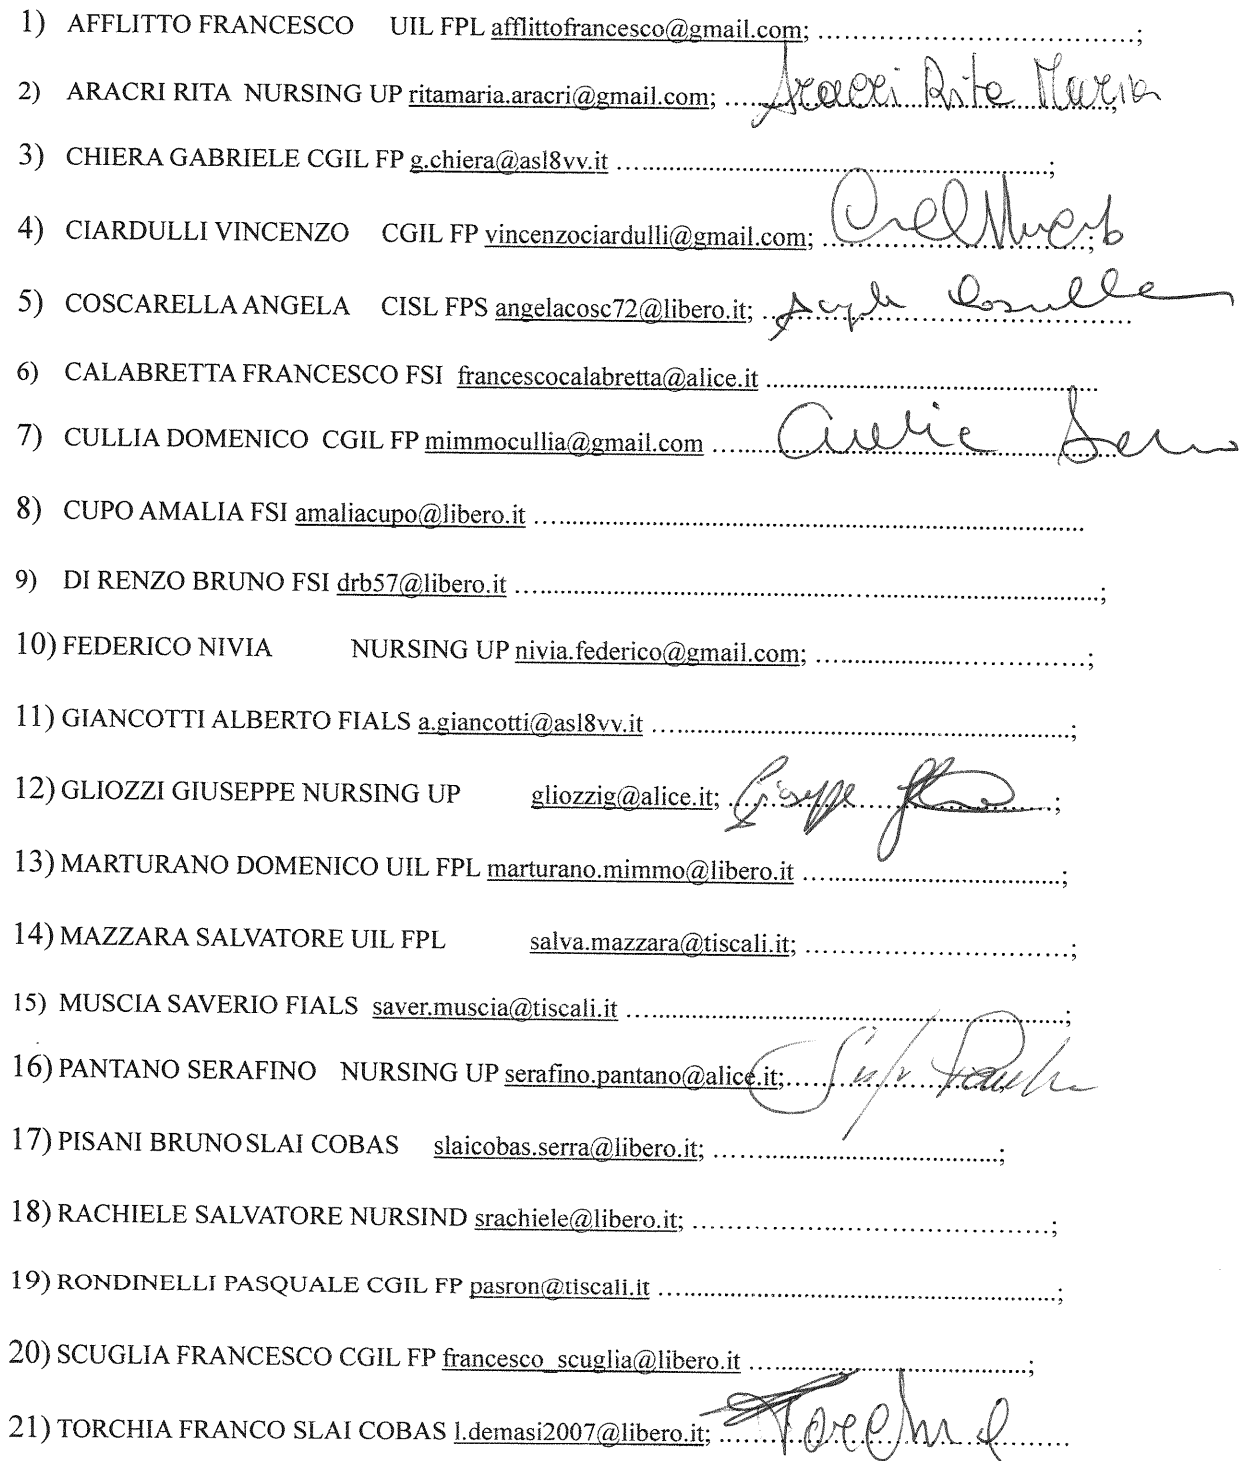 1) AFFLITTO FRANCESCO UIL FPL afflittofrancesco@gmail.com; ....................................;
2) ARACRI RITA NURSING UP ritamaria.aracri@gmail.com; .... Aracri Rita Maria
3) CHIERA GABRIELE CGIL FP g.chiera@asl8vv.it ....................................;
4) CIARDULLI VINCENZO CGIL FP vincenzociardulli@gmail.com; ....................................;
5) COSCARELLA ANGELA CISL FPS angelacosc72@libero.it; ....................................
6) CALABRETTA FRANCESCO FSI francescocalabretta@alice.it ....................................
7) CULLIA DOMENICO CGIL FP mimmocullia@gmail.com ....................................
8) CUPO AMALIA FSI amaliacupo@libero.it ....................................
9) DI RENZO BRUNO FSI drb57@libero.it ....................................;
10) FEDERICO NIVIA NURSING UP nivia.federico@gmail.com; ....................................;
11) GIANCOTTI ALBERTO FIALS a.giancotti@asl8vv.it ....................................;
12) GLIOZZI GIUSEPPE NURSING UP gliozzig@alice.it; .... Giuseppe ....;
13) MARTURANO DOMENICO UIL FPL marturano.mimmo@libero.it ....................................;
14) MAZZARA SALVATORE UIL FPL salva.mazzara@tiscali.it; ....................................;
15) MUSCIA SAVERIO FIALS saver.muscia@tiscali.it ....................................;
16) PANTANO SERAFINO NURSING UP serafino.pantano@alice.it; ....................................
17) PISANI BRUNO SLAI COBAS slaicobas.serra@libero.it; ....................................;
18) RACHIELE SALVATORE NURSIND srachiele@libero.it; ....................................;
19) RONDINELLI PASQUALE CGIL FP pasron@tiscali.it ....................................;
20) SCUGLIA FRANCESCO CGIL FP francesco_scuglia@libero.it ....................................;
21) TORCHIA FRANCO SLAI COBAS l.demasi2007@libero.it; ....................................